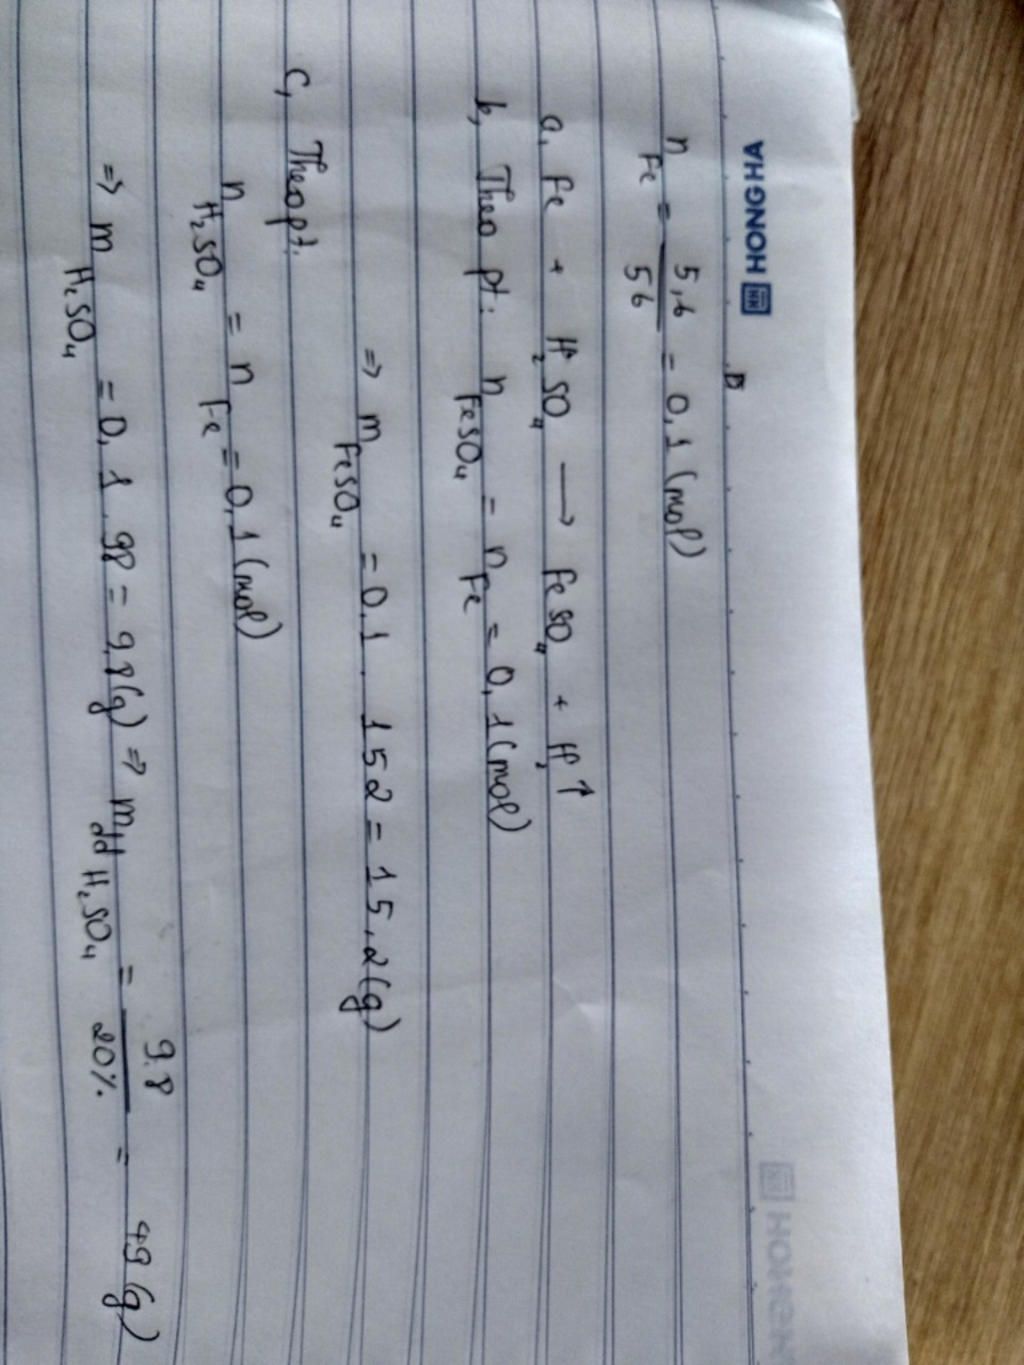 HONG HA
n Fe = 5,6 / 56 = 0,1 (mol)
a, Fe + H₂SO₄ → FeSO₄ + H₂↑
b, Theo pt: n FeSO₄ = n Fe = 0,1 (mol)
=> m FeSO₄ = 0,1 . 152 = 15,2 (g)
c, Theo pt:
n H₂SO₄ = n Fe = 0,1 (mol)
=> m H₂SO₄ = 0,1 . 98 = 9,8 (g) => m dd H₂SO₄ = 9.8 / 20% = 49 (g)